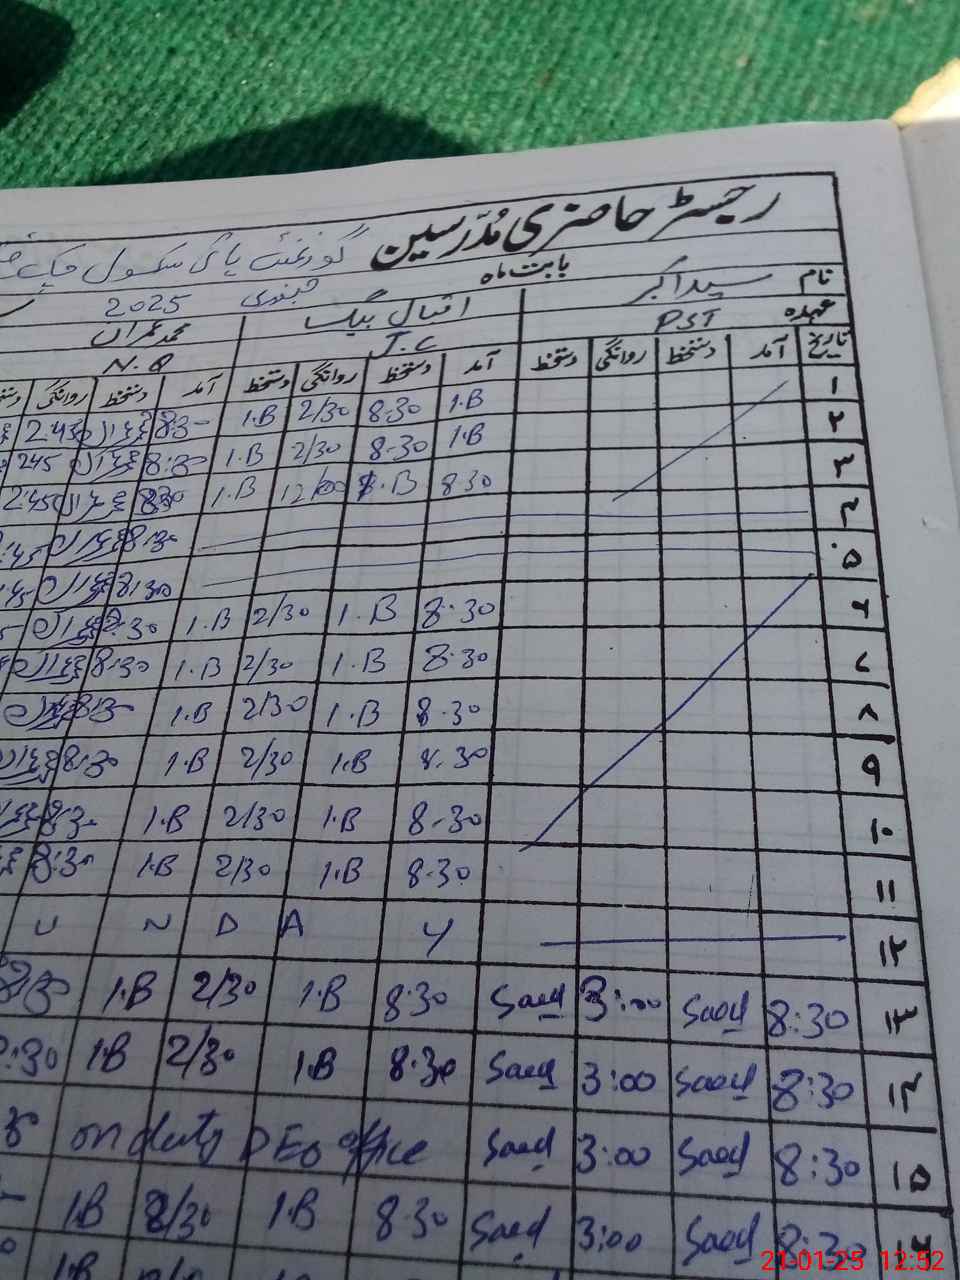 رجسٹر حاضری مُدرّسین گورنمنٹ ہائی سکول
بابت ماہ جنوری 2025
نام سید اکبر اقبال بیگ محمد عمران
عہدہ PST J.C N.Q
تاریخ آمد دستخط روانگی دستخط آمد دستخط روانگی دستخط آمد دستخط روانگی
۱ 1.B 8.30 2/30 1.B 8:30 2.45
۲ 1.B 8-30 2/30 1.B 8:30 245
۳ 8.30 1.B 12/00 1.B 8:30 2.45
۴ 8:30
۵ 8:30
۶ 8.30 1.B 2/30 1.B 8:30
۷ 8.30 1.B 2/30 1.B 8:30
۸ 8.30 1.B 2/30 1.B 8:30
۹ 8.30 1.B 2/30 1.B 8:30
۱۰ 8-30 1.B 2/30 1.B 8:30
۱۱ 8-30 1.B 2/30 1.B 8:30
۱۲ U N D A Y
۱۳ 8:30 Saed 3:00 Saed 8.30 1.B 2/30 1.B 8:30
۱۴ 8:30 Saed 3:00 Saed 8.30 1.B 2/30 1.B 8:30
۱۵ 8:30 Saed 3:00 Saed on duty DEO office
۱۶ 8:30 Saed 3:00 Saed 8.30 1.B 2/30 1.B
1.B
21-01-25 12:52